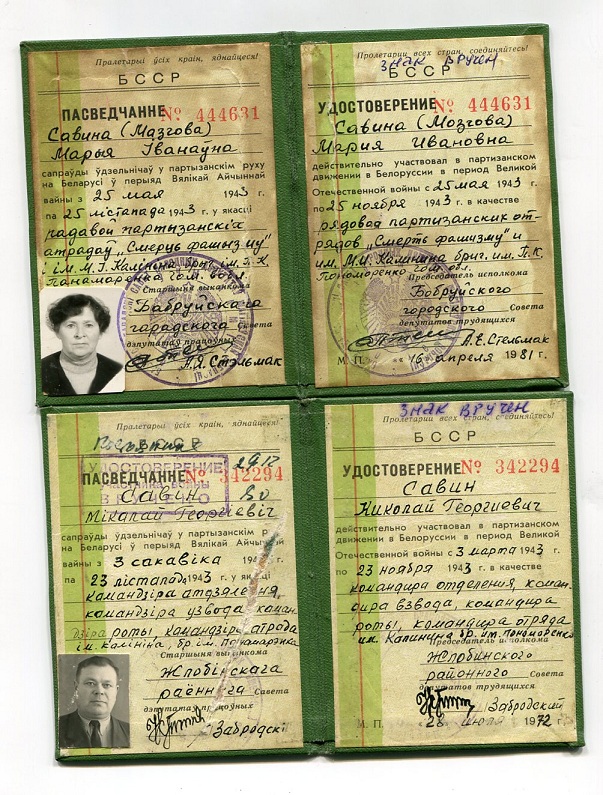 Пралетарыі ўсіх краін, яднайцеся!
БССР
ПАСВЕДЧАННЕ № 444631
Савина (Мазгова)
Марыя Іванаўна
сапраўды ўдзельнічаў у партызанскім руху
на Беларусі ў перыяд Вялікай Айчыннай
вайны з 25 мая 1943 г.
па 25 лістапада 1943 г. у якасці
радавой партызанскіх
атрадаў „Смерць фашизму"
і ім. М.І. Калініна брыг. ім. П.К.
Панамарэнка гом. вобл.
Старшыня выканкома
Бабруйскага
гарадскога Савета
дэпутатаў працоўных
А.Я. Стэльмак
Пролетарии всех стран, соединяйтесь!
ЗНАК ВРУЧЕН
БССР
УДОСТОВЕРЕНИЕ № 444631
Савина (Мозгова)
Мария Ивановна
действительно участвовал в партизанском
движении в Белоруссии в период Великой
Отечественной войны с 25 мая 1943 г.
по 25 ноября 1943 г. в качестве
рядовой партизанских от-
рядов „Смерть фашизму" и
им. М.И. Калинина бриг. им. П.К.
Пономаренко гом. обл.
Председатель исполкома
Бобруйского
городского Совета
депутатов трудящихся
А.Е. Стельмак
М. П. „16" апреля 1981 г.
Пралетарыі ўсіх краін, яднайцеся!
УДОСТОВЕРЕНИЕ
ПАСВЕДЧАННЕ № 342294
САВИН
Мікалай Георгіевіч
сапраўды ўдзельнічаў у партызанскім руху
на Беларусі ў перыяд Вялікай Айчыннай
вайны з 3 сакавіка 1943 г.
па 23 лістапада 1943 г. у якасці
камандзіра аддзялення,
камандзіра узвода, каман
дзіра роты, камандзіра атрада
ім. Калініна, бр. ім. Панамарэнка
Старшыня выканкома
Жлобінскага
раённага Савета
дэпутатаў працоўных
Забродскі
ЗНАК ВРУЧЕН
Пролетарии всех стран, соединяйтесь!
БССР
УДОСТОВЕРЕНИЕ № 342294
САВИН
Николай Георгиевич
действительно участвовал в партизанском
движении в Белоруссии в период Великой
Отечественной войны с 3 марта 1943 г.
по 23 ноября 1943 г. в качестве
командира отделения, коман-
дира взвода, командира
роты, командира отряда
им. Калинина бр. им. Пономаренко
Председатель исполкома
Жлобинского
районного Совета
депутатов трудящихся
Забродский
М. П. 28 июля 1972 г.